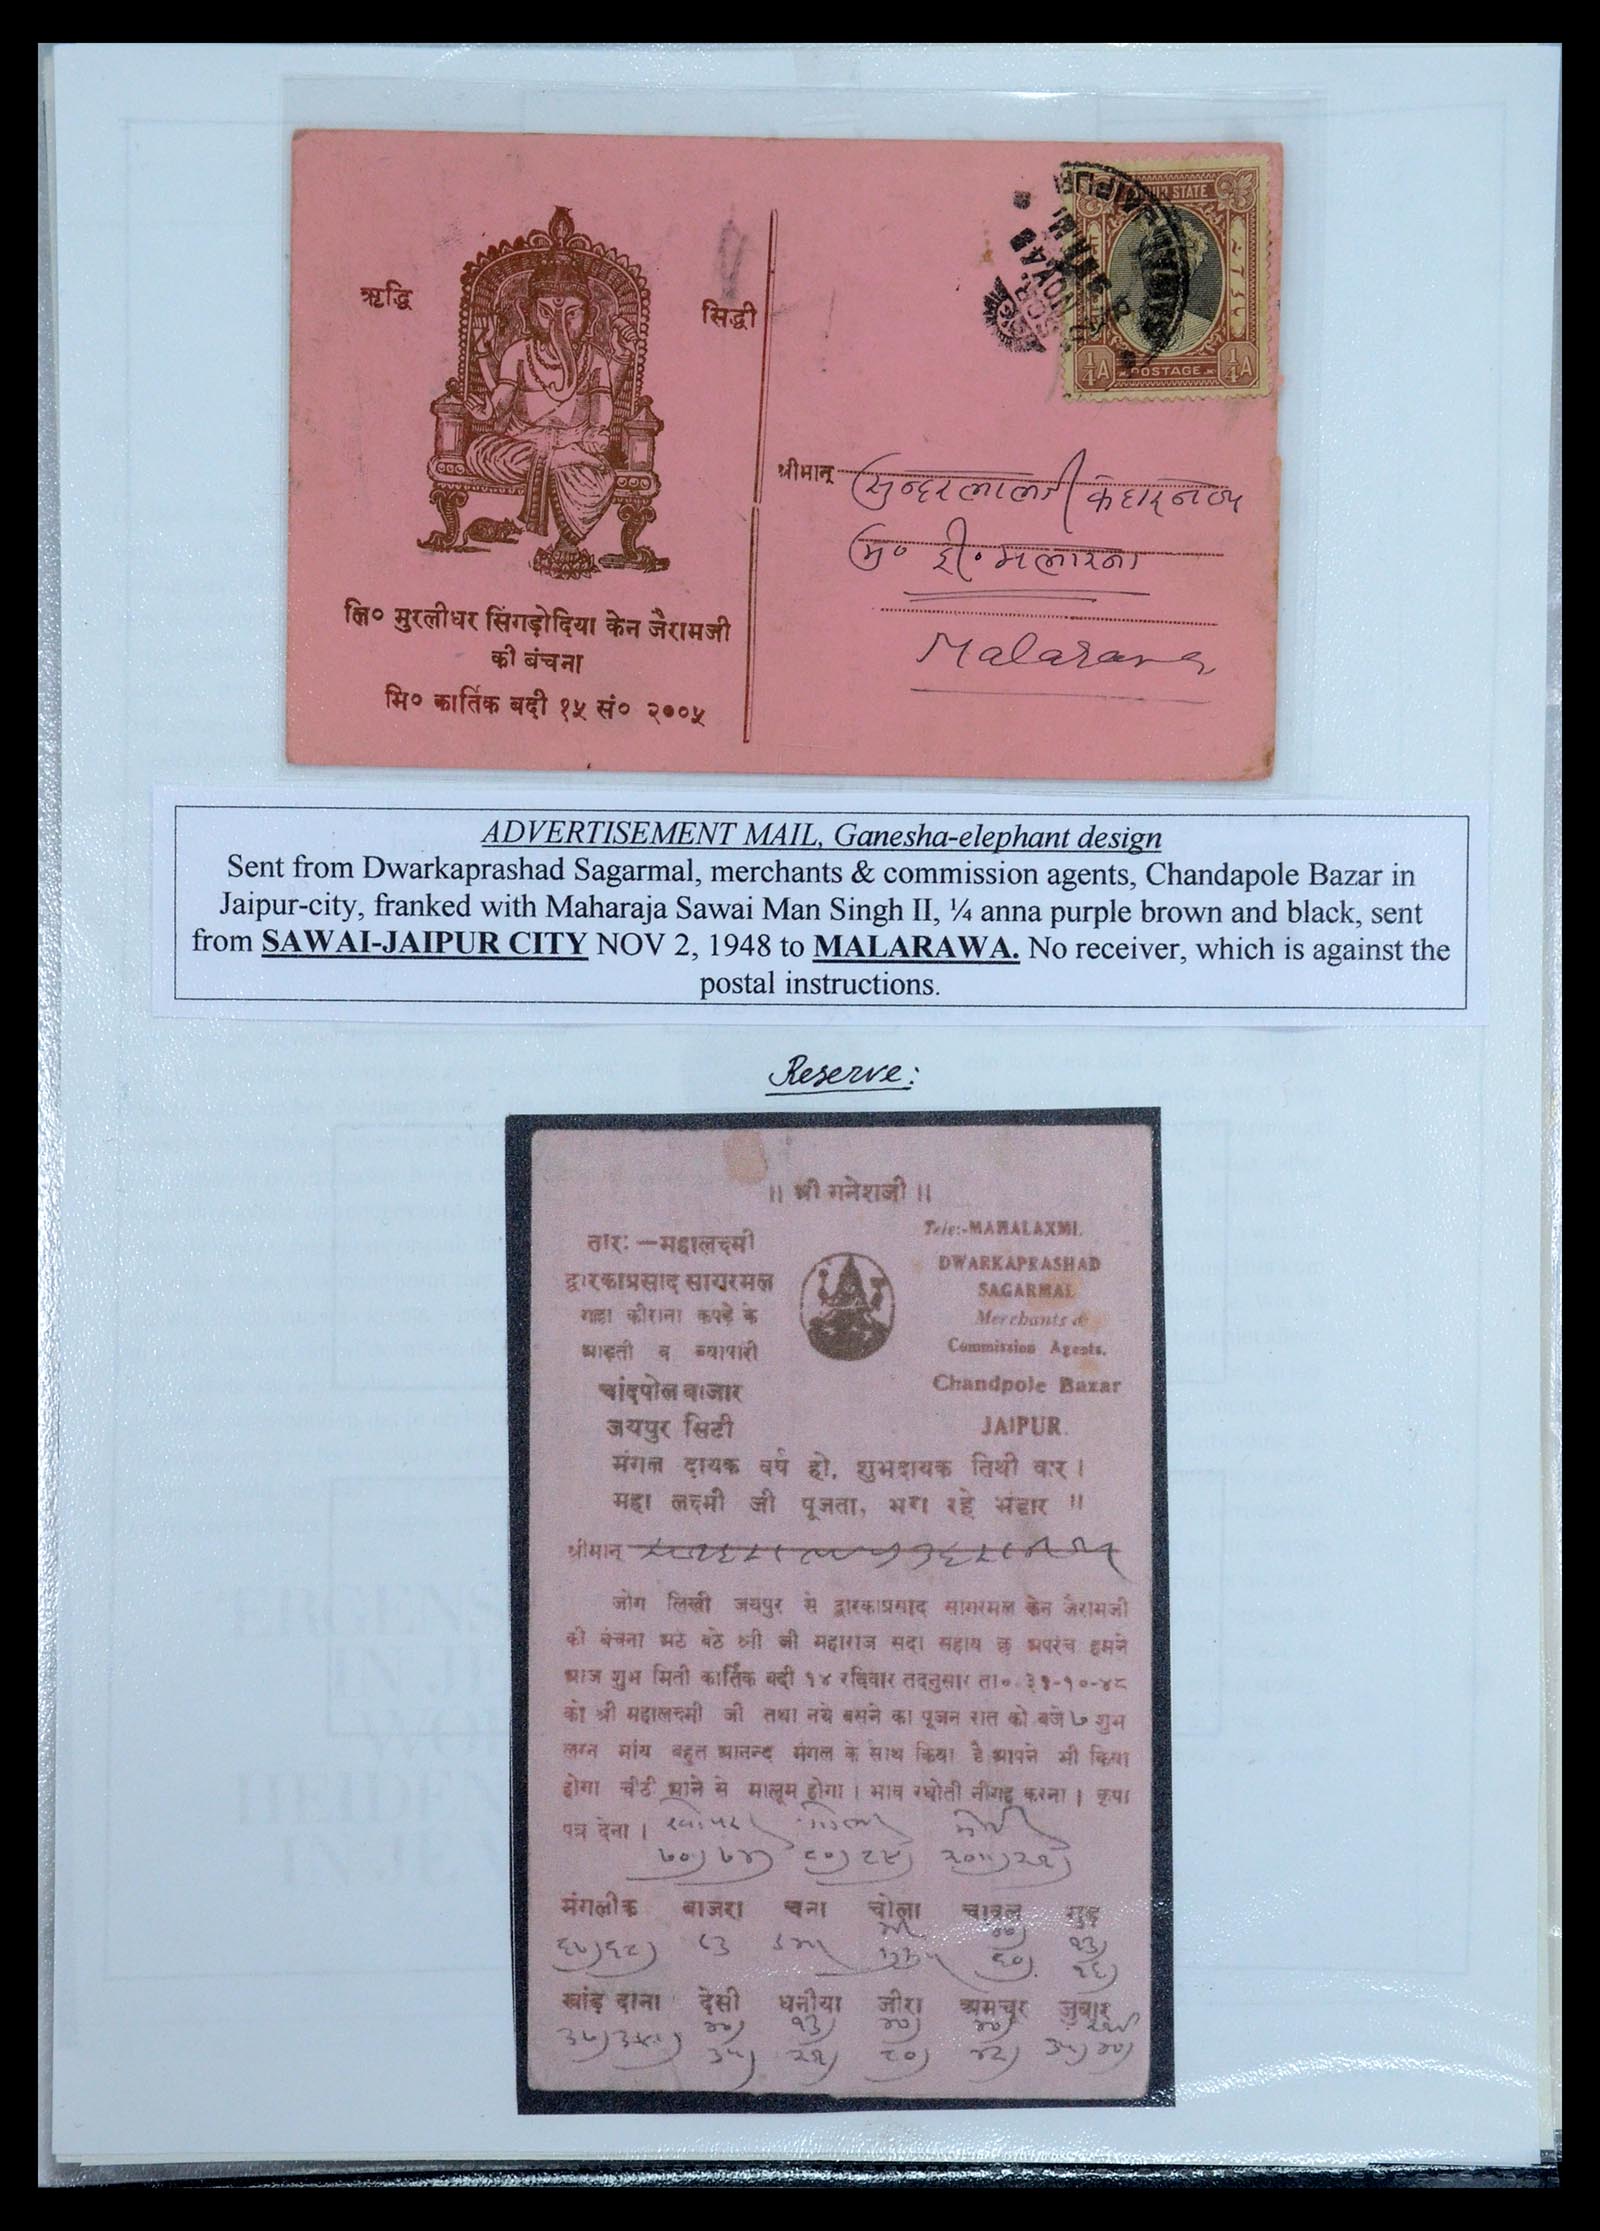 ऋद्धि
सिद्धी
लि० मुरलीधर सिंगड़ोदिया केन जैरामजी
की बंचना
मि० कार्तिक बदी १५ सं० २००५
POSTAGE
¼A ¼A
श्रीमान् सुन्दरलालजी केदारनाथ
मु० डी० मलारना
Malarana
ADVERTISEMENT MAIL, Ganesha-elephant design
Sent from Dwarkaprashad Sagarmal, merchants & commission agents, Chandapole Bazar in
Jaipur-city, franked with Maharaja Sawai Man Singh II, ¼ anna purple brown and black, sent
from SAWAI-JAIPUR CITY NOV 2, 1948 to MALARAWA. No receiver, which is against the
postal instructions.
Reserve:
।। श्री गनेशजी ।।
तार: —महालक्ष्मी
द्वारकाप्रसाद सागरमल
गल्ला कीराना कपड़े के
आढ़ती व व्यापारी
चांदपोल बाजार
जयपुर सिटी
Tele:-MAHALAXMI.
DWARKAPRASHAD
SAGARMAL
Merchants &
Commission Agents.
Chandpole Bazar
JAIPUR.
मंगल दायक वर्ष हो, शुभदायक तिथी वार ।
महा लक्ष्मी जी पूजता, भरा रहे भंडार ॥
श्रीमान्
जोग लिखी जयपुर से द्वारकाप्रसाद सागरमल केन जैरामजी
की बंचना अठे बठे श्री जी महाराज सदा सहाय छ अपरंच हमने
आज शुभ मिती कार्तिक बदी १४ रविवार तदनुसार ता० ३१-१०-४८
को श्री महालक्ष्मी जी तथा नये बसने का पूजन रात को बजे ७ शुभ
लग्न मांय बहुत आनन्द मंगल के साथ किया है आपने भी किया
होगा चीठी आने से मालूम होगा । भाव रधोती नीगह करना । कृपा
पत्र देना ।
मंगलीक बाजरा चना चोला चावल गुड़
खांड दाना देसी धनीया जीरा अमचूर जुवार